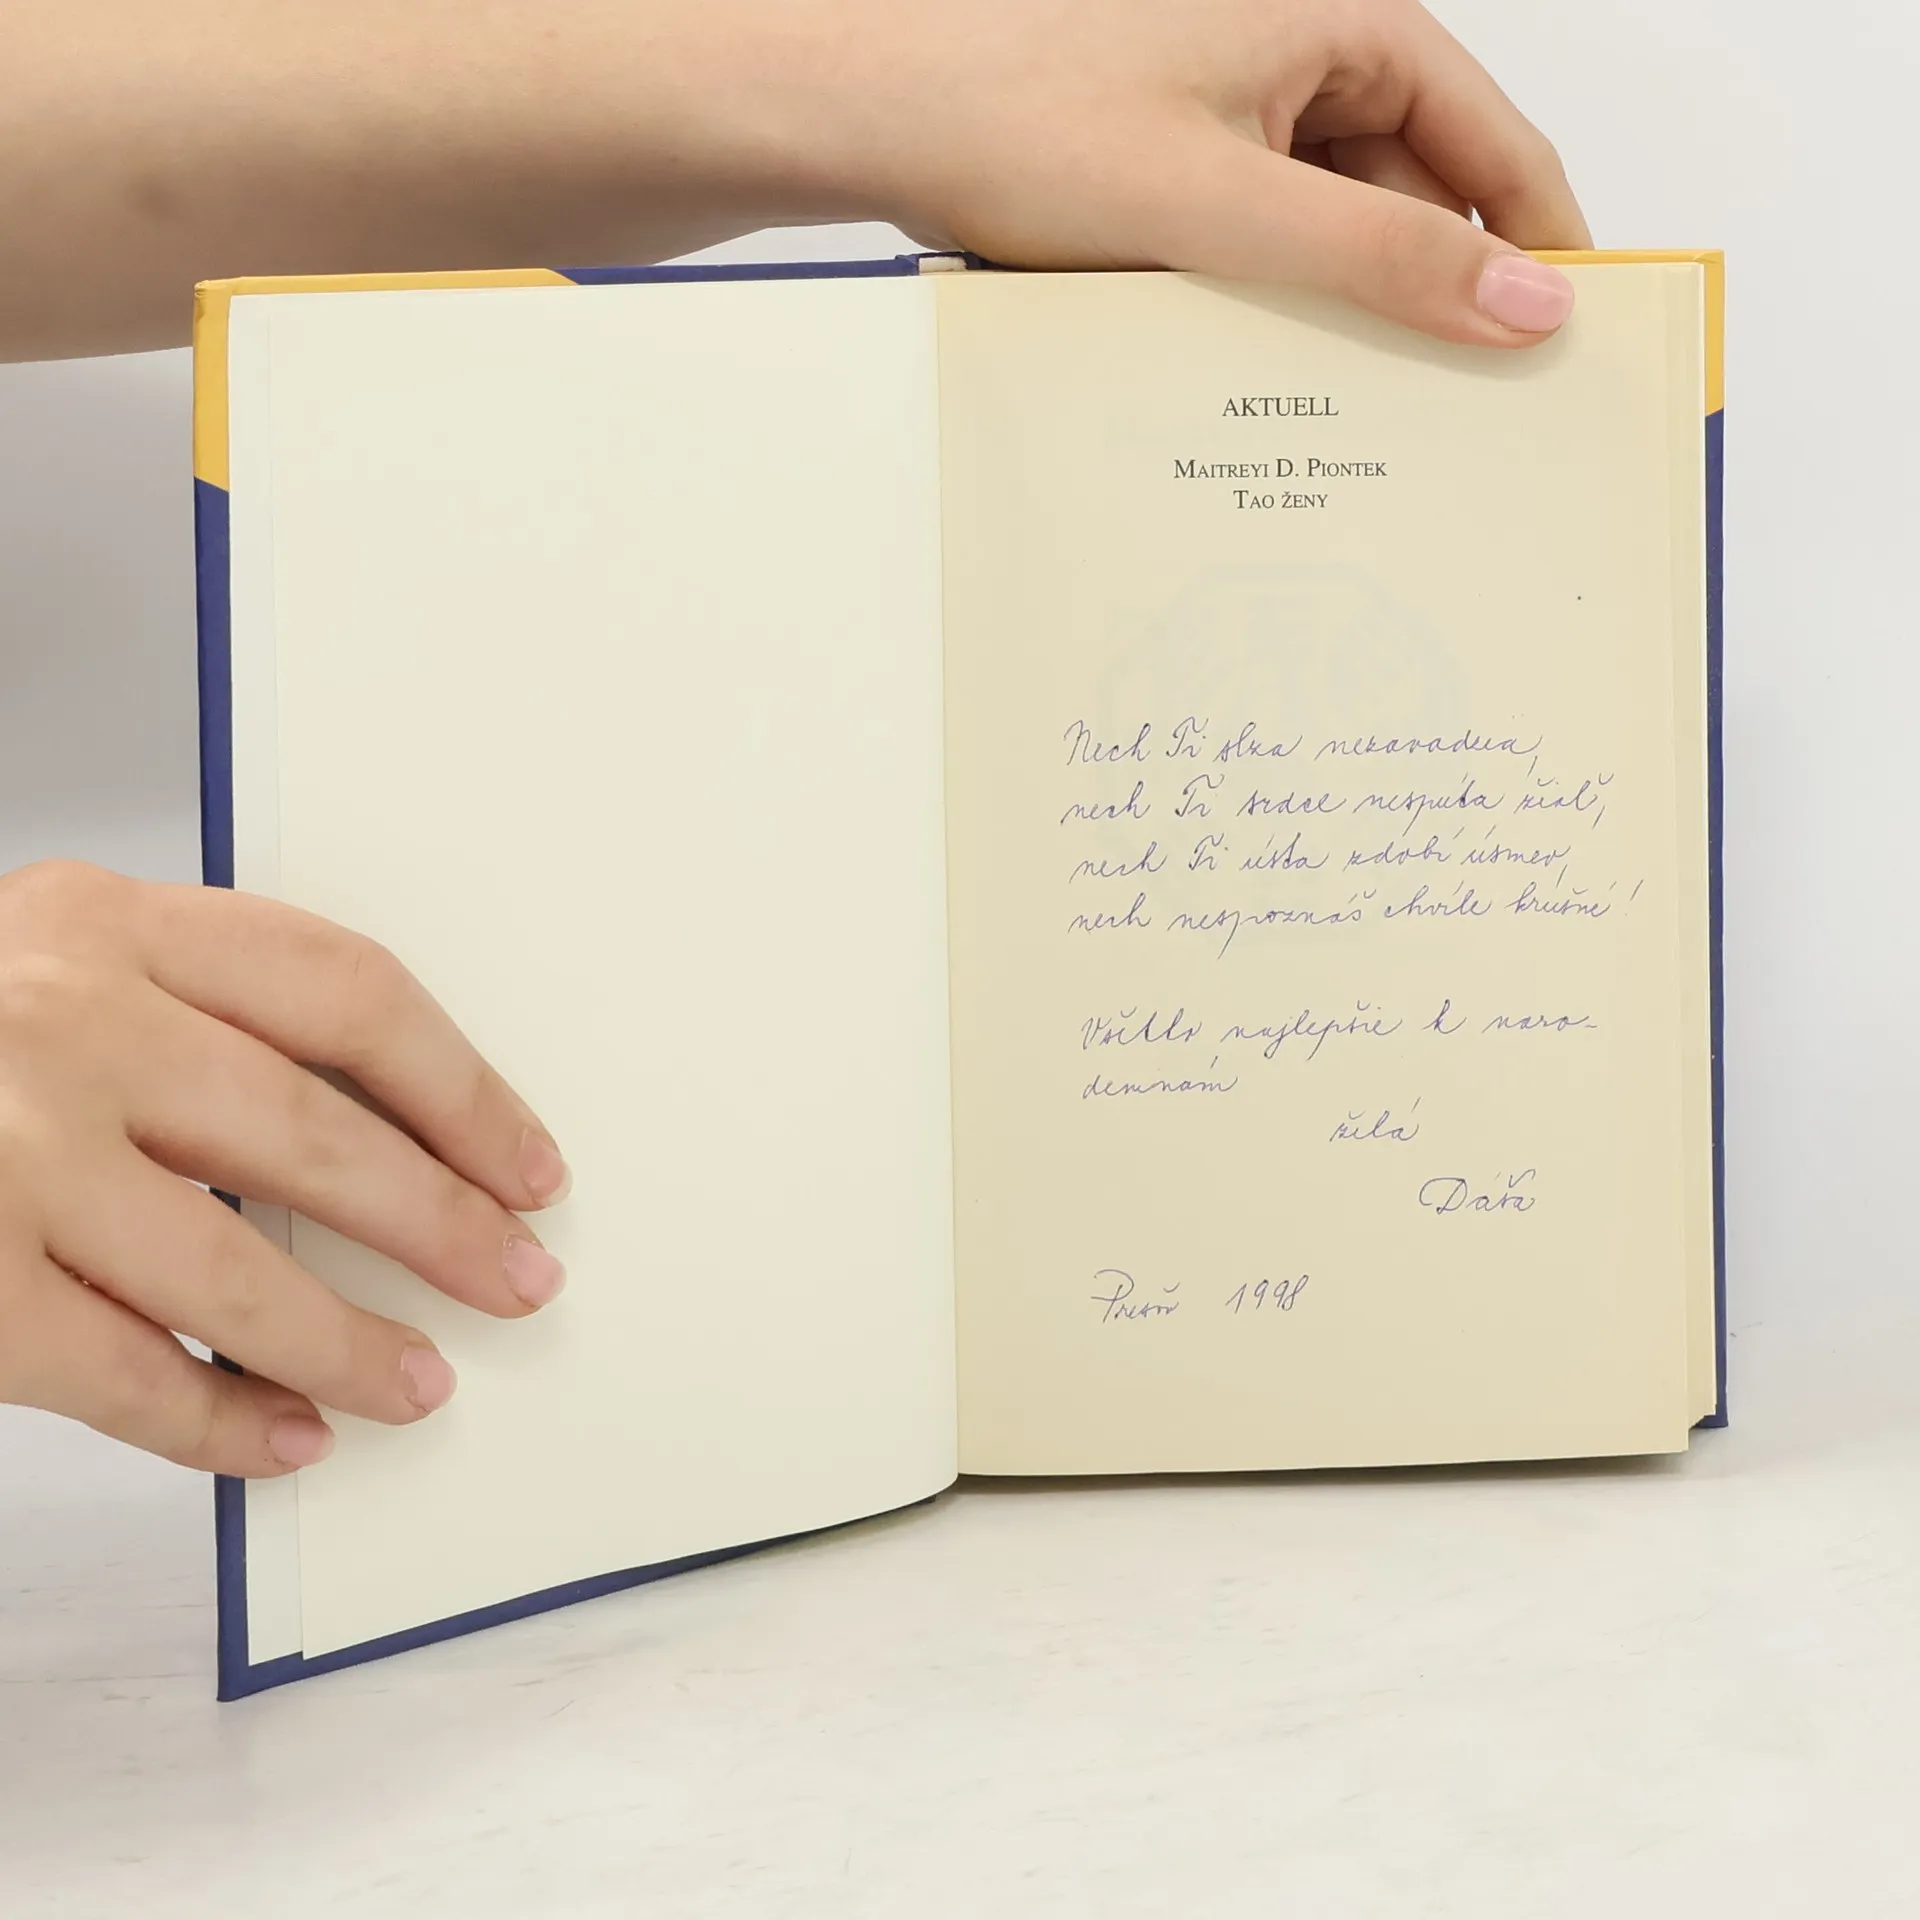 AKTUELL
MAITREYI D. PIONTEK
TAO ŽENY
Nech Ti slza nezavadzia,
nech Ti srdce nespúta žiaľ,
nech Ti ústa zdobí úsmev,
nech nespoznáš chvíle krušné!
Všetko najlepšie k naro-
deninám
želá
Dáša
Prešov 1998